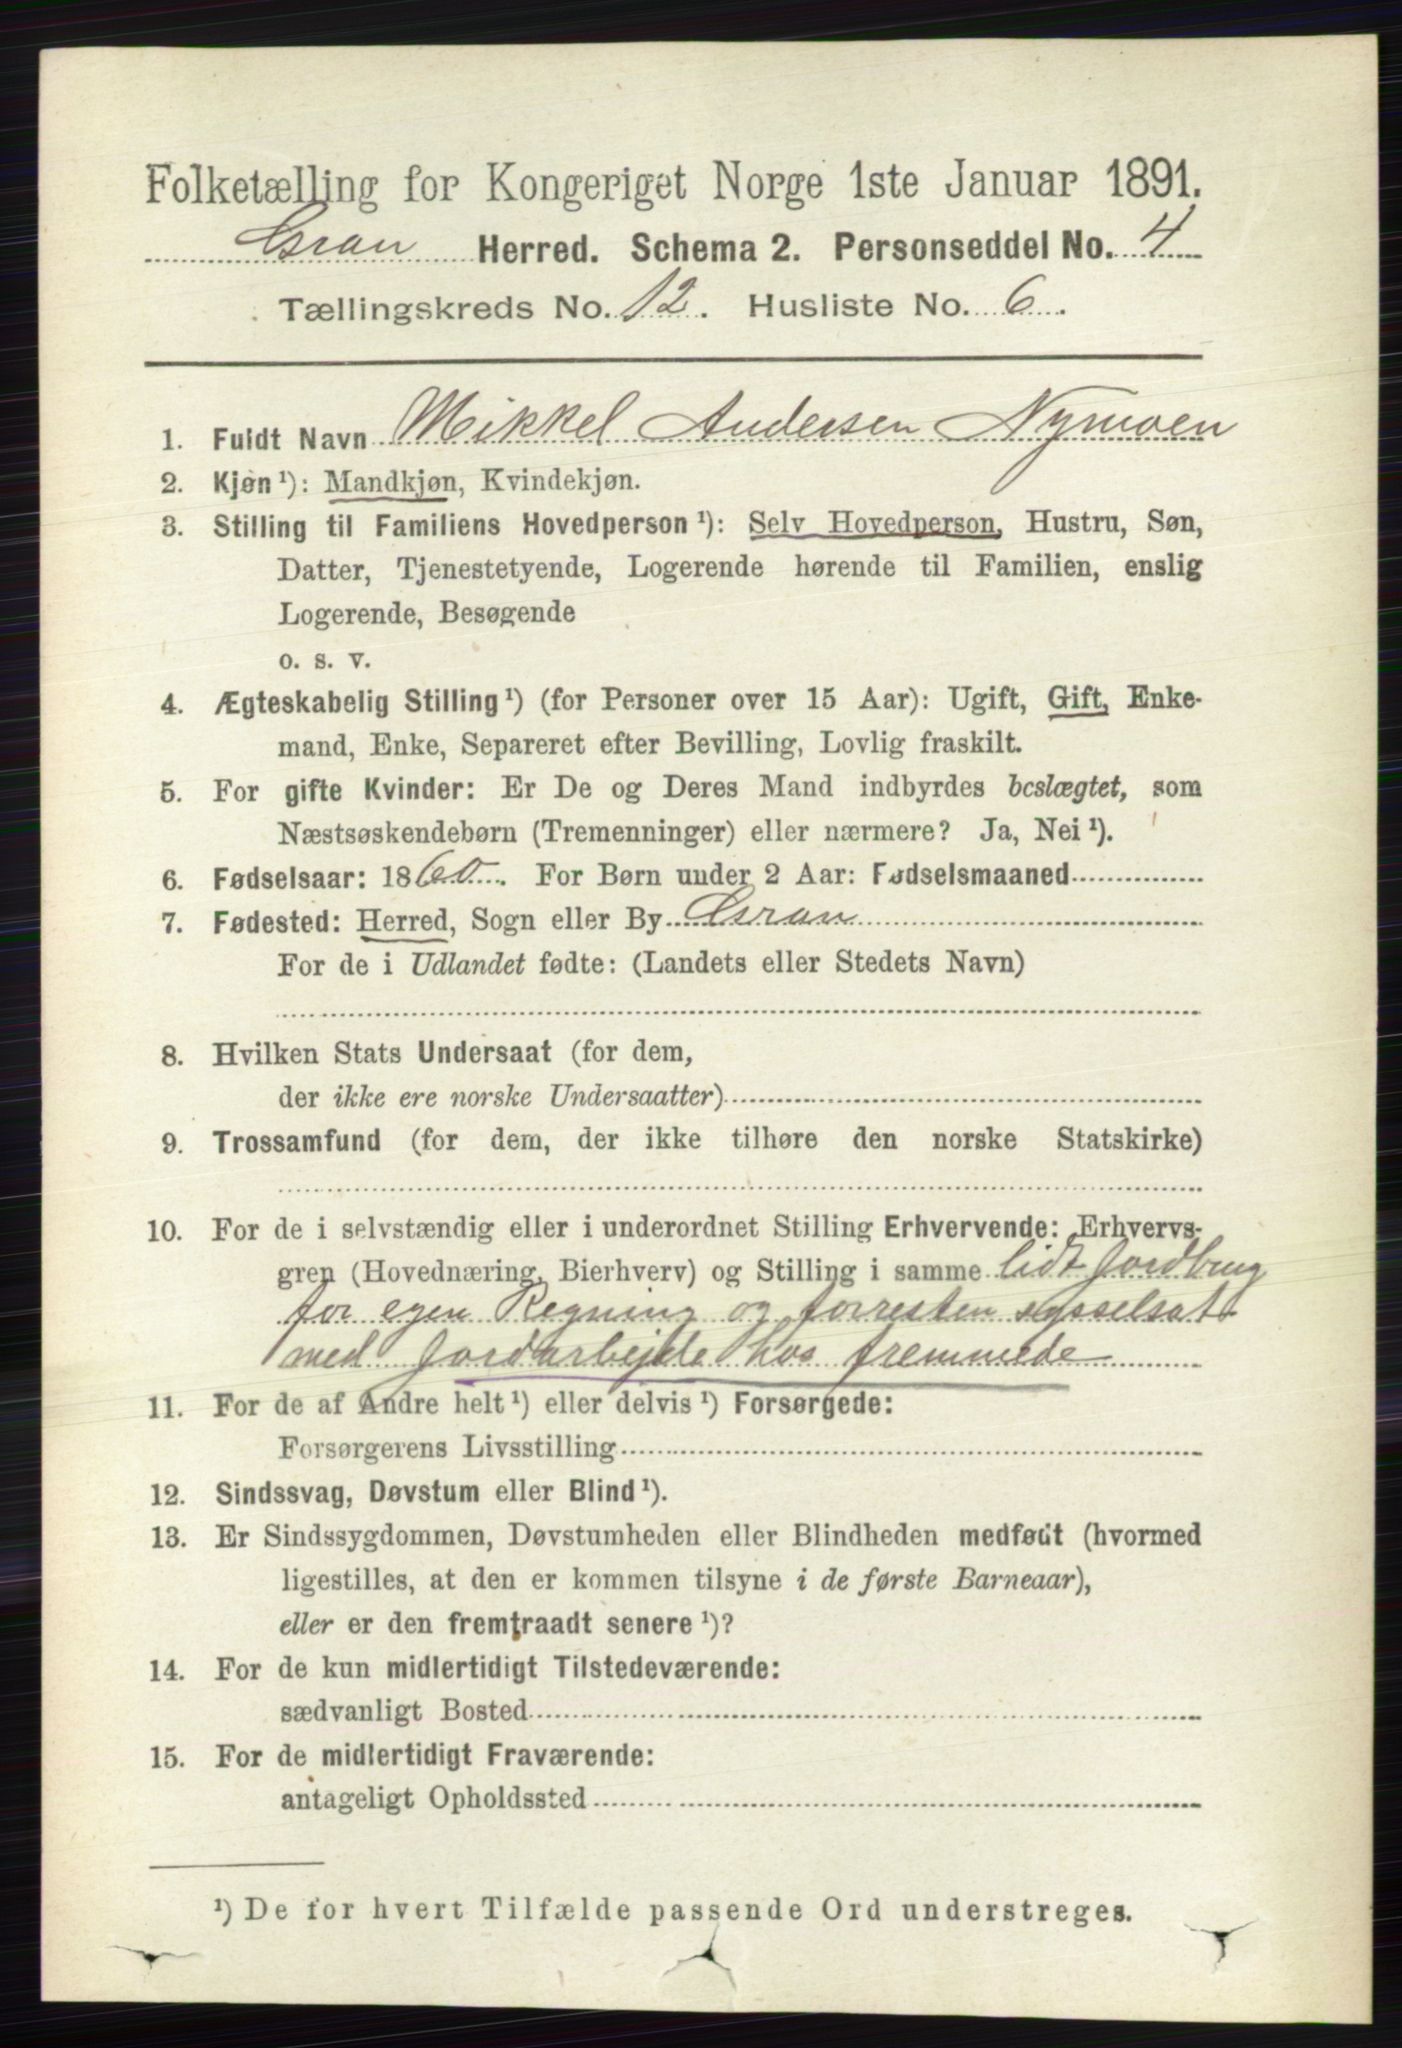 Folketælling for Kongeriget Norge 1ste Januar 1891.
Gran Herred. Schema 2. Personseddel No. 4
Tællingskreds No. 12. Husliste No. 6.
1. Fuldt Navn Mikkel Andersen Nymoen
2. Kjøn ¹): Mandkjøn, Kvindekjøn.
3. Stilling til Familiens Hovedperson ¹): Selv Hovedperson, Hustru, Søn,
Datter, Tjenestetyende, Logerende hørende til Familien, enslig
Logerende, Besøgende
o. s. v.
4. Ægteskabelig Stilling ¹) (for Personer over 15 Aar): Ugift, Gift, Enke-
mand, Enke, Separeret efter Bevilling, Lovlig fraskilt.
5. For gifte Kvinder: Er De og Deres Mand indbyrdes beslægtet, som
Næstsøskendebørn (Tremenninger) eller nærmere? Ja, Nei ¹).
6. Fødselsaar: 1860. For Børn under 2 Aar: Fødselsmaaned
7. Fødested: Herred, Sogn eller By Gran
For de i Udlandet fødte: (Landets eller Stedets Navn)
8. Hvilken Stats Undersaat (for dem,
der ikke ere norske Undersaatter)
9. Trossamfund (for dem, der ikke tilhøre den norske Statskirke)
10. For de i selvstændig eller i underordnet Stilling Erhvervende: Erhvervs-
gren (Hovednæring, Bierhverv) og Stilling i samme lidt Jordbrug
for egen Regning og forresten sysselsat
med Jordarbejde hos fremmede
11. For de af Andre helt ¹) eller delvis ¹) Forsørgede:
Forsørgerens Livsstilling
12. Sindssvag, Døvstum eller Blind ¹).
13. Er Sindssygdommen, Døvstumheden eller Blindheden medfødt (hvormed
ligestilles, at den er kommen tilsyne i de første Barneaar),
eller er den fremtraadt senere ¹)?
14. For de kun midlertidigt Tilstedeværende:
sædvanligt Bosted
15. For de midlertidigt Fraværende:
antageligt Opholdssted
¹) De for hvert Tilfælde passende Ord understreges.